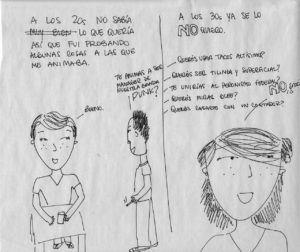 A LOS 20s NO SABÍA
MUY BIEN LO QUE QUERÍA
ASÍ QUE FUI PROBANDO
ALGUNAS COSAS A LAS QUE
ME ANIMABA.
TE ANIMAS A SER
MANAGER DE
BANDA
PUNK?
BUENO.
A LOS 30s YA SE LO
NO
QUIERO.
- QUERÉS USAR TACOS ALTÍSIMOS?
- QUERÉS SER TILINGA Y SUPERFICIAL?
- TE UNIRÍAS AL PERONISMO FEDERAL?
- QUERÉS MIRAR
- QUERÉS CASARTE CON UN CONTADOR?
NO,